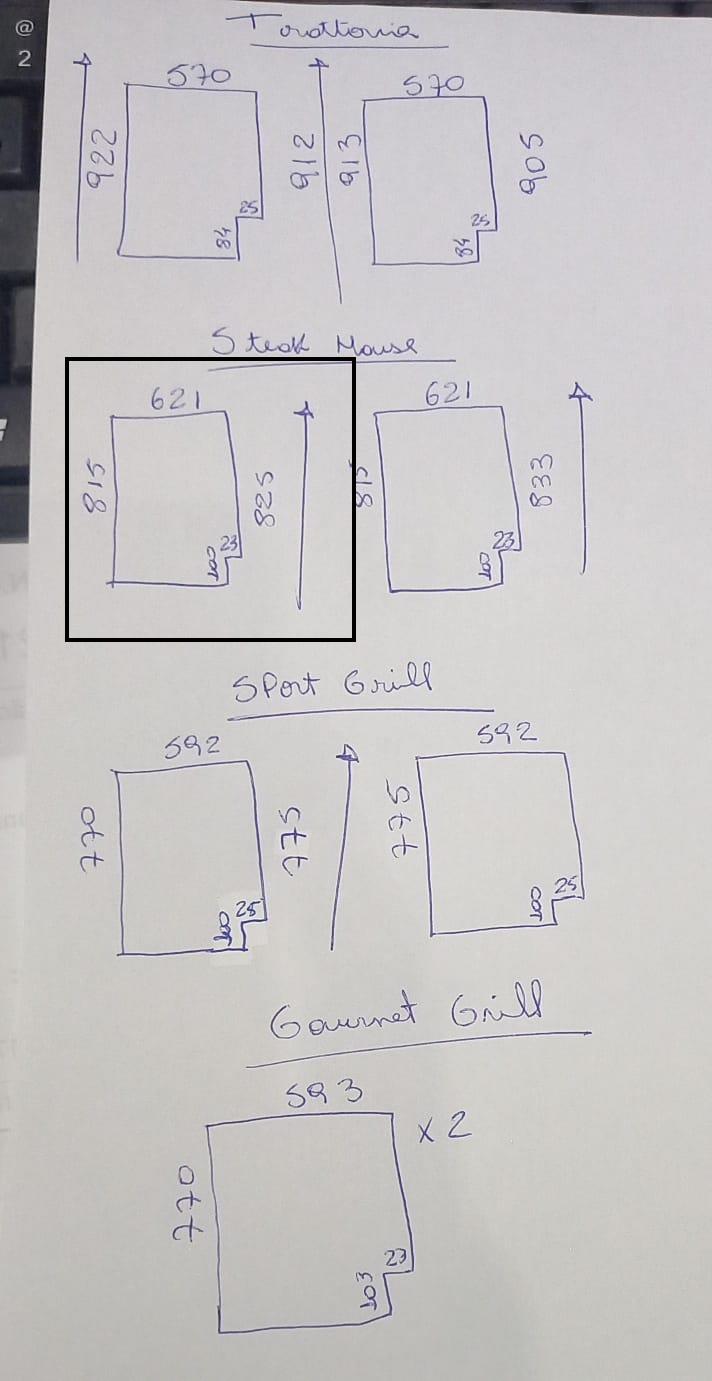 @
2
Torattoria
570
570
922
912
913
905
25
84
25
84
Steak House
621
621
815
825
815
833
23
100
23
100
Sport Grill
592
592
770
775
775
25
100
25
100
Gourmet Grill
593
x 2
770
23
103